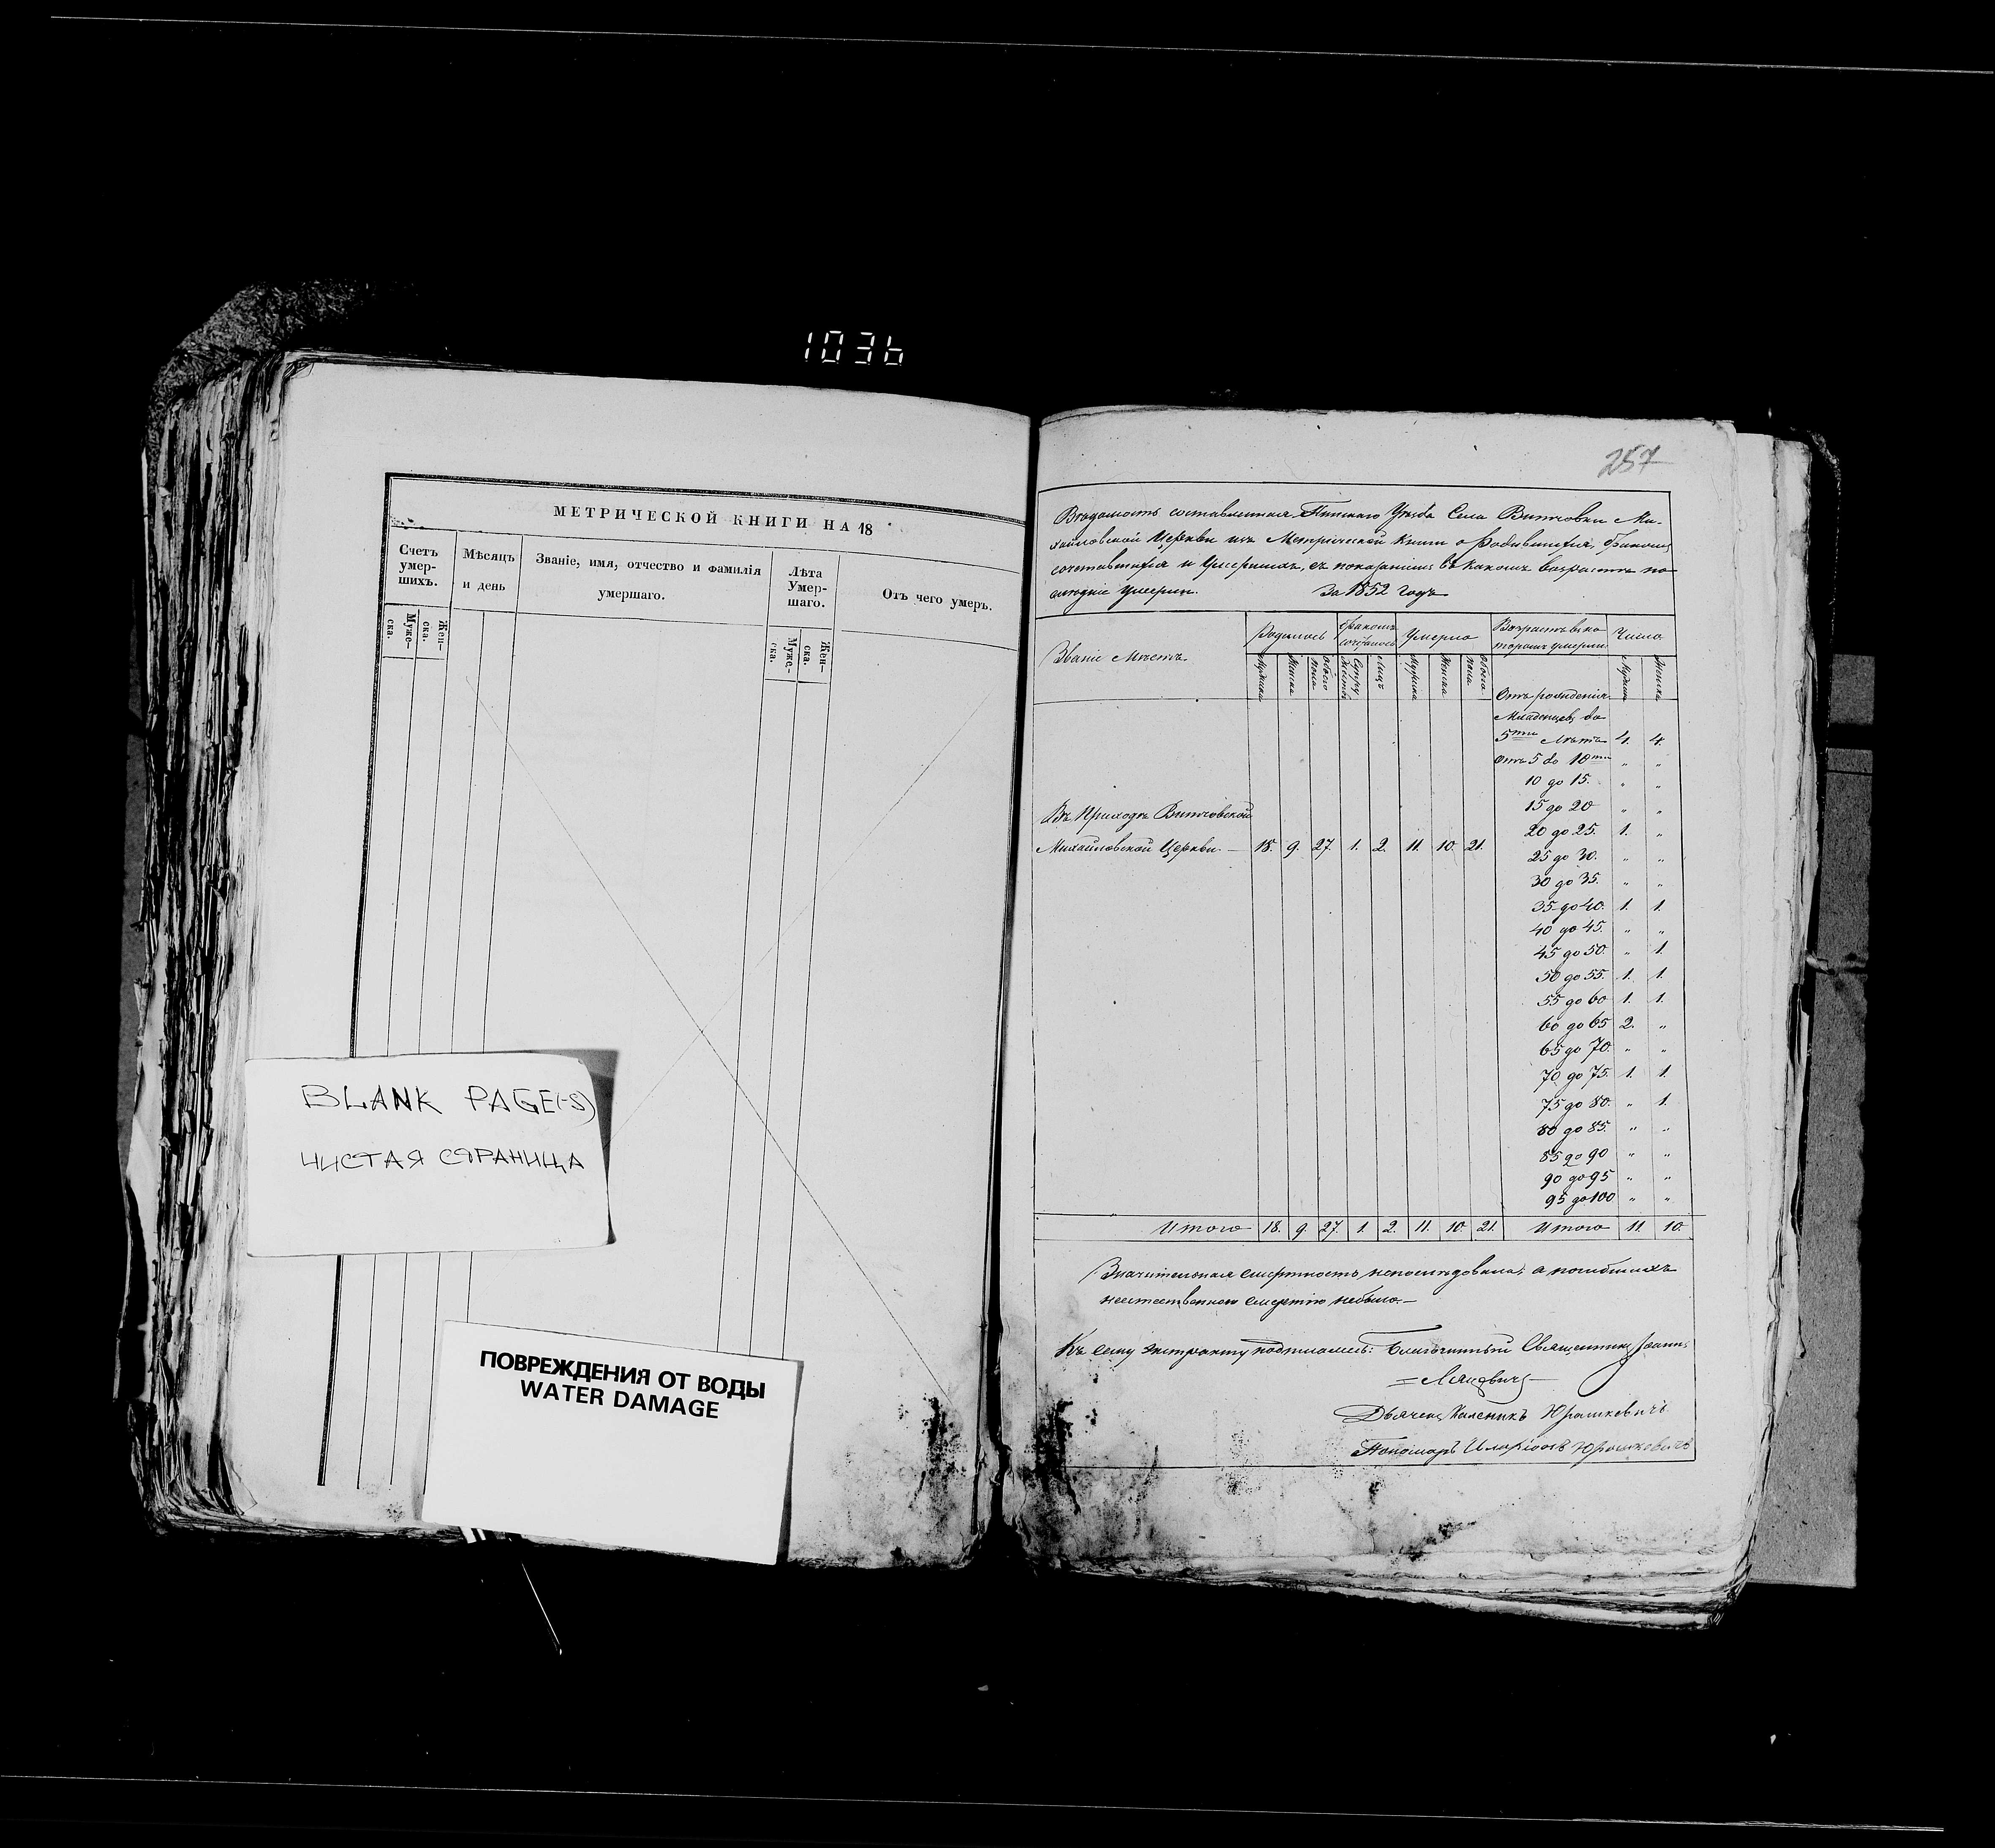 1036
МЕТРИЧЕСКОЙ КНИГИ НА 18
Счетъ умер-шихъ.
Муже-ска.
Жен-ска.
Мѣсяцъ и день
Званіе, имя, отчество и фамилія умершаго.
Лѣта Умер-шаго.
Муже-ска.
Жен-ска.
Отъ чего умеръ.
BLANK PAGE(-S)
ЧИСТАЯ СТРАНИЦА
ПОВРЕЖДЕНИЯ ОТ ВОДЫ
WATER DAMAGE
257
Вѣдомость составленная Пинскаго Уѣзда Села Витчовки Ми-
хайловской Церкви изъ Метрической Книги о Родившихся, бракомъ
сочетавшихся и Умершихъ, съ показаніемъ въ какомъ возрастѣ по-
слѣдніе умерли. За 1852 годъ
Званіе Мѣстъ.
Родилось
Мужеска
Женска
Обоего пола
бракомъ
Лицъ
Умерло
Мужеска
Женска
Обоего пола
Возрастъ въ ко
торомъ умерли
Число
Мужеска
Женска
Отъ рожденія
Младенцевъ до
5ти Лѣтъ 4. 4.
Отъ 5 до 10ти " "
10 до 15. " "
15 до 20 " "
Въ Приходѣ Витчовской
20 до 25. 1. "
Михайловской Церкви. — 18. 9. 27. 1. 2. 11. 10. 21.
25 до 30. " "
30 до 35. " "
35 до 40. 1. 1.
40 до 45. " "
45 до 50. " 1.
50 до 55. 1. 1.
55 до 60 1. 1.
60 до 65 2. "
65 до 70. " "
70 до 75. 1. 1.
75 до 80. " 1.
80 до 85. " "
85 до 90 " "
90 до 95 " "
95 до 100 " "
Итого 18. 9. 27. 1. 2. 11. 10. 21. Итого 11. 10.
Значительная смертность непослѣдовала, а погибшихъ
неестественною смертію небыло.—
Къ сему экстракту подписались: Благочинный Священникъ Іоаннъ
Дьячекъ Каленикъ Юрашкевичъ
Пономарь Иларіонъ Юрашкевичъ